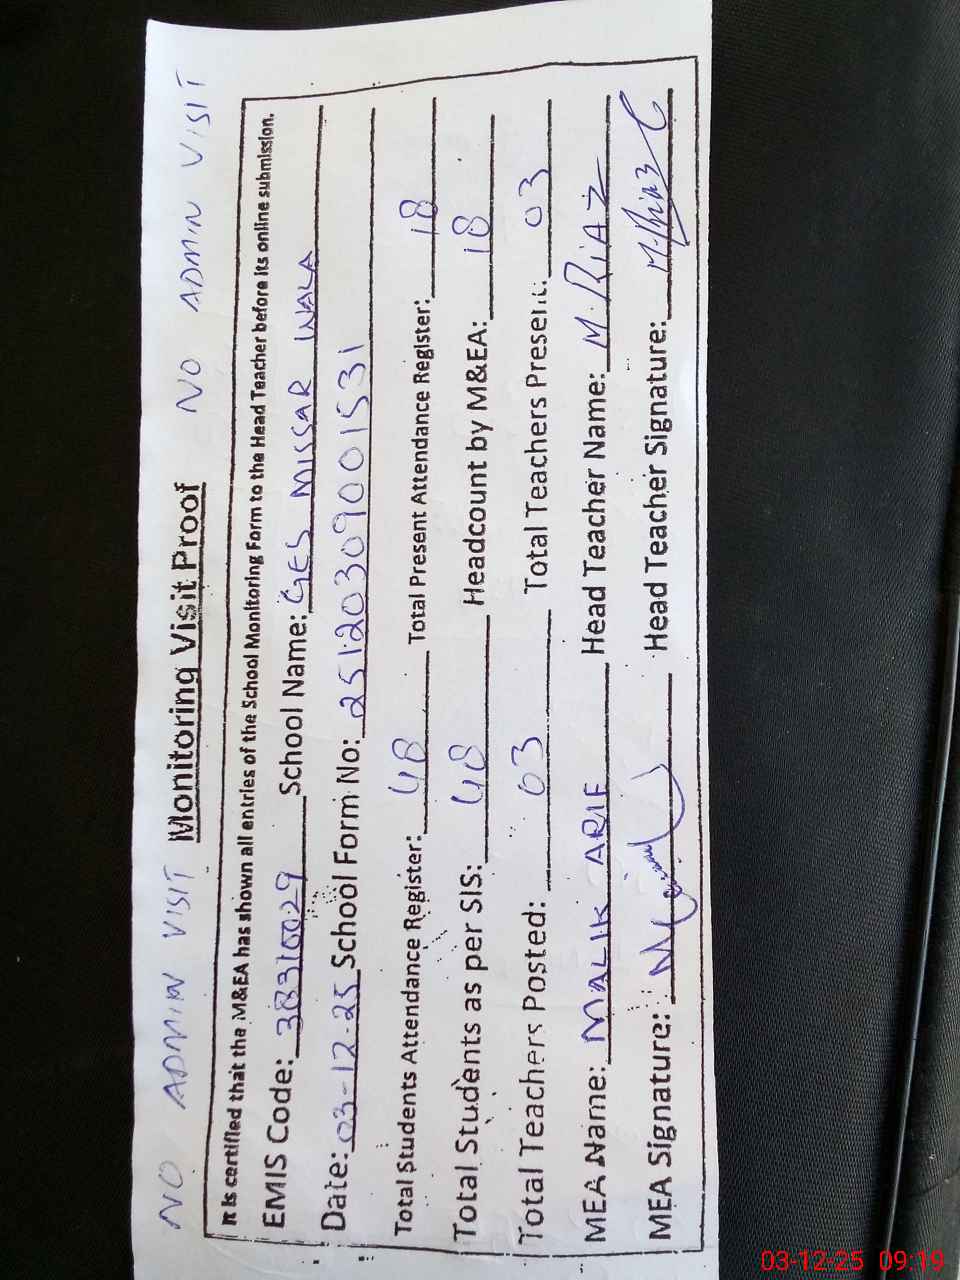 NO ADMIN VISIT Monitoring Visit Proof NO ADMIN VISIT
It is certified that the M&EA has shown all entries of the School Monitoring Form to the Head Teacher before its online submission.
EMIS Code: 38310029 School Name: GES MISSAR WALA
Date: 03-12-25 School Form No: 25120309001531
Total Students Attendance Register: 48 Total Present Attendance Register: 18
Total Students as per SIS: 48 Headcount by M&EA: 18
Total Teachers Posted: 03 Total Teachers Present: 03
MEA Name: MALIK ARIF Head Teacher Name: M. RiAZ
MEA Signature: Head Teacher Signature: M. Riaz
03-12-25 09:19